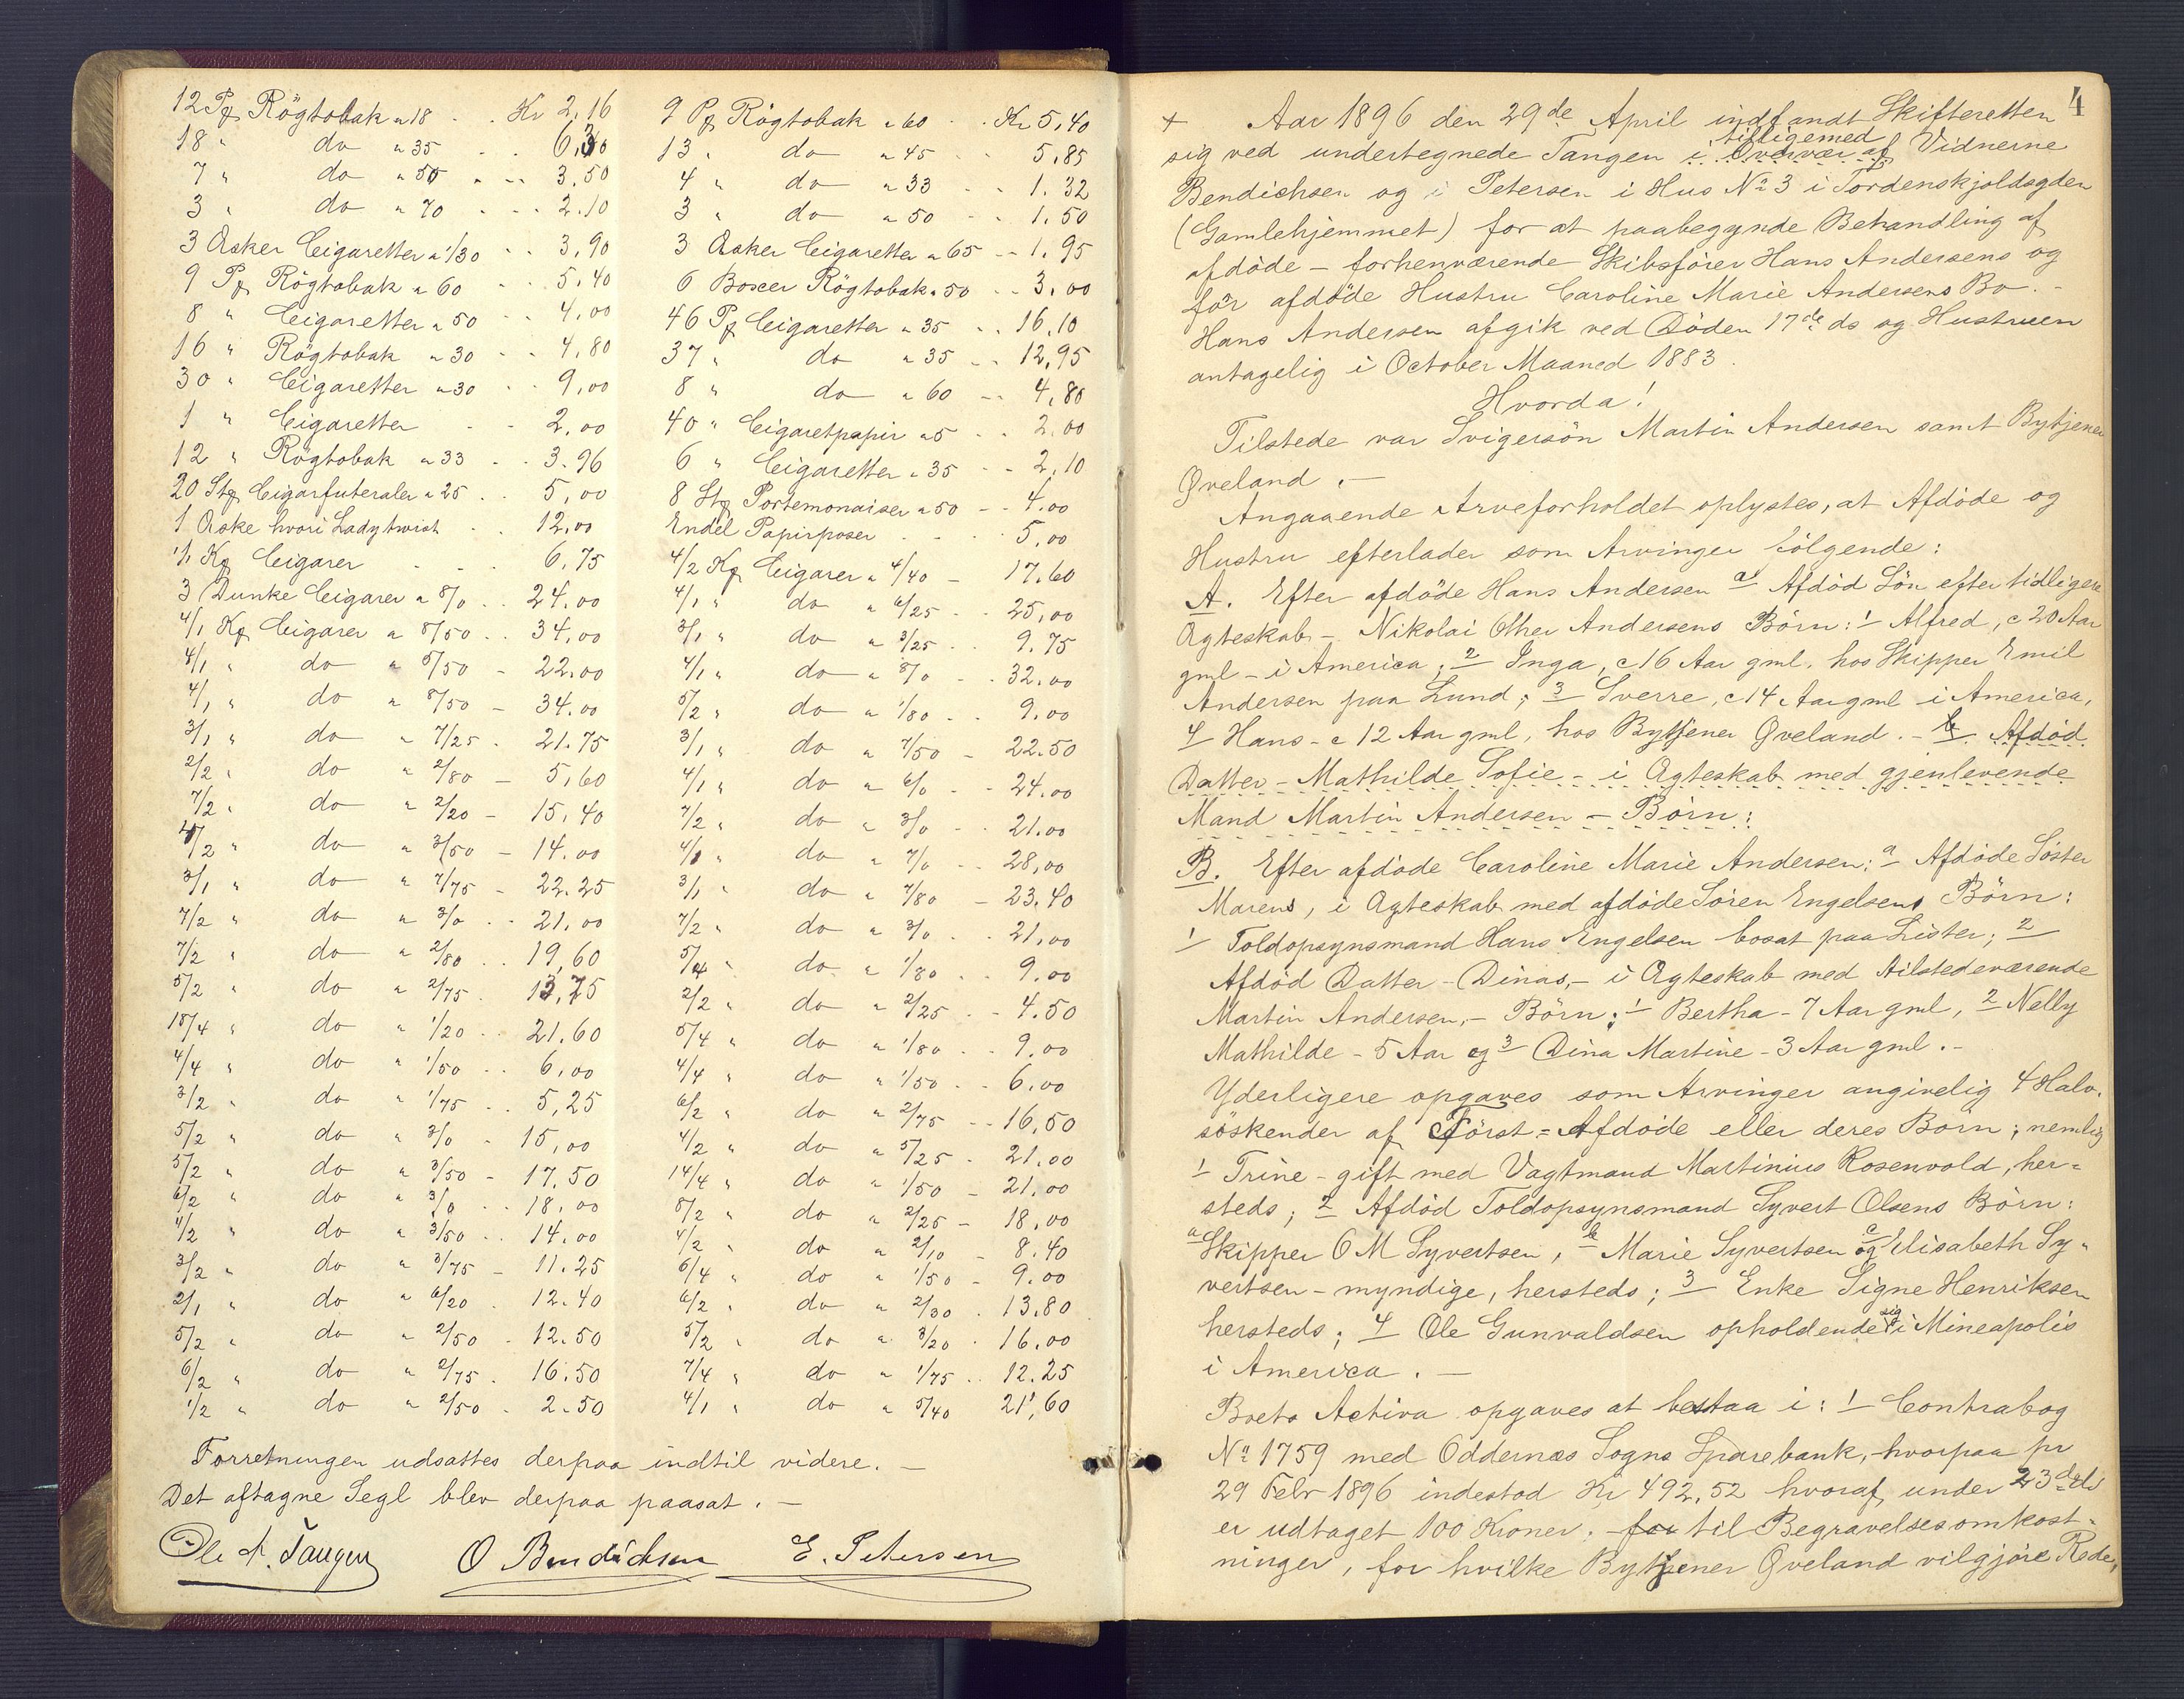 12 Pg Rögtobak a 18 . . Kr 2,16
18 " do a 35 . . 6,30
7 " do a 50 . . 3,50
3 " do a 70 . . 2.10
3 Æsker Cigaretter a 1/30 . . 3,90
9 Pg Rögtobak a 60 . . 5.40
8 " Cigaretter a 50 . . 4,00
16 " Rögtobak a 30 . . 4,80
30 " Cigaretter a 30 . . 9,00
1 " Cigaretter . . 2,00
12 " Rögtobak a 33 . . 3.96
20 Stg Cigarfuteraler a 25 . . 5,00
1 Æske hvori Ladytwist . 12,00
1/1 Kg Cigarer . . . 6,75
3 Dunke Cigarer a 8/0 . . 24,00
4/1 Kg Cigarer a 8/50 . . 34,00
4/1 " do a 5/50 - 22,00
4/1 " do a 8/50 - 34.00
3/1 " do a 7/25 . 21.75
2/2 " do a 2/80 - 5,60
7/2 " do a 2/20 - 15,40
4/2 " do a 3/50 - 14.00
3/1 " do a 7/75 - 22.25
7/2 " do a 3/0 . . 21,00
7/2 " do a 2/80 . . 19,60
5/2 " do a 2/75 . 13,75
18/4 " do a 1/20 . . 21.60
4/4 " do a 1/50 . . 6,00
3/2 " do a 1/75 . . 5,25
5/2 " do a 3/0 . 15,00
5/2 " do a 3/50 - 17,50
6/2 " do a 3/0 . . 18,00
4/2 " do a 3/50 . . 14.00
3/2 " do a 3/75 - 11.25
2/1 " do a 6/20 . 12.40
5/2 " do a 2/50 . 12.50
6/2 " do a 2/75 . 16.50
1/2 " do a 2/50 . 2.50
9 Pg Rögtobak a 60 . . Kr 5,40
13 " do a 45 . . 5,85
4 " do a 33 . . 1.32
3 " do a 50 . . 1.50
3 Æsker Cigaretter a 65 . . 1.95
6 Boxer Rögtobak a 50 . . 3,00
46 Pg Cigaretter a 35 . . 16,10
37 " do a 35 . . 12,95
8 " do a 60 . . 4,80
40 " Cigaretpapir a 5 . . 2.00
6 " Cigaretter a 35 . . 2,10
8 Stg Portemonaiser a 50 . . 4.00
Endel Papirposer . . . 5,00
4/2 Kg Cigarer a 4/40 - 17.60
4/1 " do a 6/25 . . 25,00
3/1 " do a 3/25 . . 9.75
4/1 " do a 8/0 . . 32,00
5/2 " do a 1/80 . . 9.00
3/1 " do a 7/50 - 22.50
4/1 " do a 6/0 . . 24.00
7/2 " do a 3/0 . . 21.00
4/1 " do a 7/0 . . 28,00
3/1 " do a 7/80 - 23.40
7/2 " do a 3/0 . . 21,00
5/4 " do a 1/80 . . 9.00
2/2 " do a 2/25 . . 4.50
5/4 " do a 1/80 . . 9.00
4/4 " do a 1/50 . . 6,00
6/2 " do a 2/75 . . 16,50
4/2 " do a 5/25 . 21.00
14/4 " do a 1/50 - 21,00
8/2 " do a 2/25 - 18,00
4/2 " do a 2/10 - 8.40
6/4 " do a 1/50 - 9.00
6/2 " do a 2/30 . 13.80
5/2 " do a 3/20 . 16.00
7/4 " do a 1/75 . . 12.25
4/1 " do a 5/40 21,60
Forretningen udsattes derpaa indtil videre. –
Det aftagne Segl blev derpaa paasat. –
Ole A. Tangen O Bendichsen E. Petersen
4
+ Aar 1896 den 29de April indfandt Skifteretten
sig ved undertegnede Tangen i Overvær af tilligemed Vidnerne
Bendichsen og i Petersen i Hus No 3 i Tordenskjoldsgden
(Gamlehjemmet) for at paabegynde Behandling af
afdöde – forhenværende Skibsförer Hans Andersens og
för afdöde Hustru Caroline Marie Andersens Bo. –
Hans Andersen afgik ved Döden 17de ds og Hustruen
antagelig i October Maaned 1883.
Hvorda!
Tilstede var Svigersön Martin Andersen samt Bytjener
Øveland. –
Angaaende Arveforholdet oplystes, at Afdöde og
Hustru efterlader som Arvinger følgende:
A. Efter afdöde Hans Andersen a Afdöd Sön efter tidligere
Ægteskab – Nikolai Olher Andersens Börn: 1 Alfred, c 20 Aar
gml – i America; 2 Inga, c 16 Aar gml. hos Skipper Emil
Andersen paa Lund; 3 Sverre, c 14 Aar gml i America,
4 Hans – c 12 Aar gml, hos Bytjener Øveland. – b. Afdöd
Datter – Mathilde Sofie – i Ægteskab med gjenlevende
Mand Martin Andersen – Börn:
B. Efter afdöde Caroline Marie Andersen: a Afdöde Söster
Marens, i Ægteskab med afdöde Sören Engelsens Börn:
1 Toldopsynsmand Hans Engelsen bosat paa Lister; 2
Afdöd Datter – Dinas, – i Ægteskab med tilstedeværende
Martin Andersen, – Börn; 1 Bertha – 7 Aar gml, 2 Nelly
Mathilde – 5 Aar og 3 Dina Martine – 3 Aar gml. –
Yderligere opgaves som Arvinger angivelig 4 Halv-
söskender af Först=Afdöde eller deres Börn; nemlig
1 Trine – gift med Vagtmand Martinius Rosenvold, her=
steds; 2 Afdöd Toldopsynsmand Syvert Olsens Börn:
a Skipper O M Syvertsen, b Marie Syvertsen og c Elisabeth Sy-
vertsen – myndige, hersteds; 3 Enke Signe Henriksen
hersteds; 4 Ole Gunvaldsen opholdende sig i Mineapolis
i America. –
Boets Activa opgaves at bestaa i: 1 Contrabog
No 1759 med Oddernæs Sogns Sparebank, – hvorpaa pr
29 Febr 1896 indestod Kr 492,52 hvoraf under 23de ds
er udtaget 100 Kroner. – for til Begravelsesomkost-
ninger, for hvilke Bytjener Øveland vil gjöre Rede,